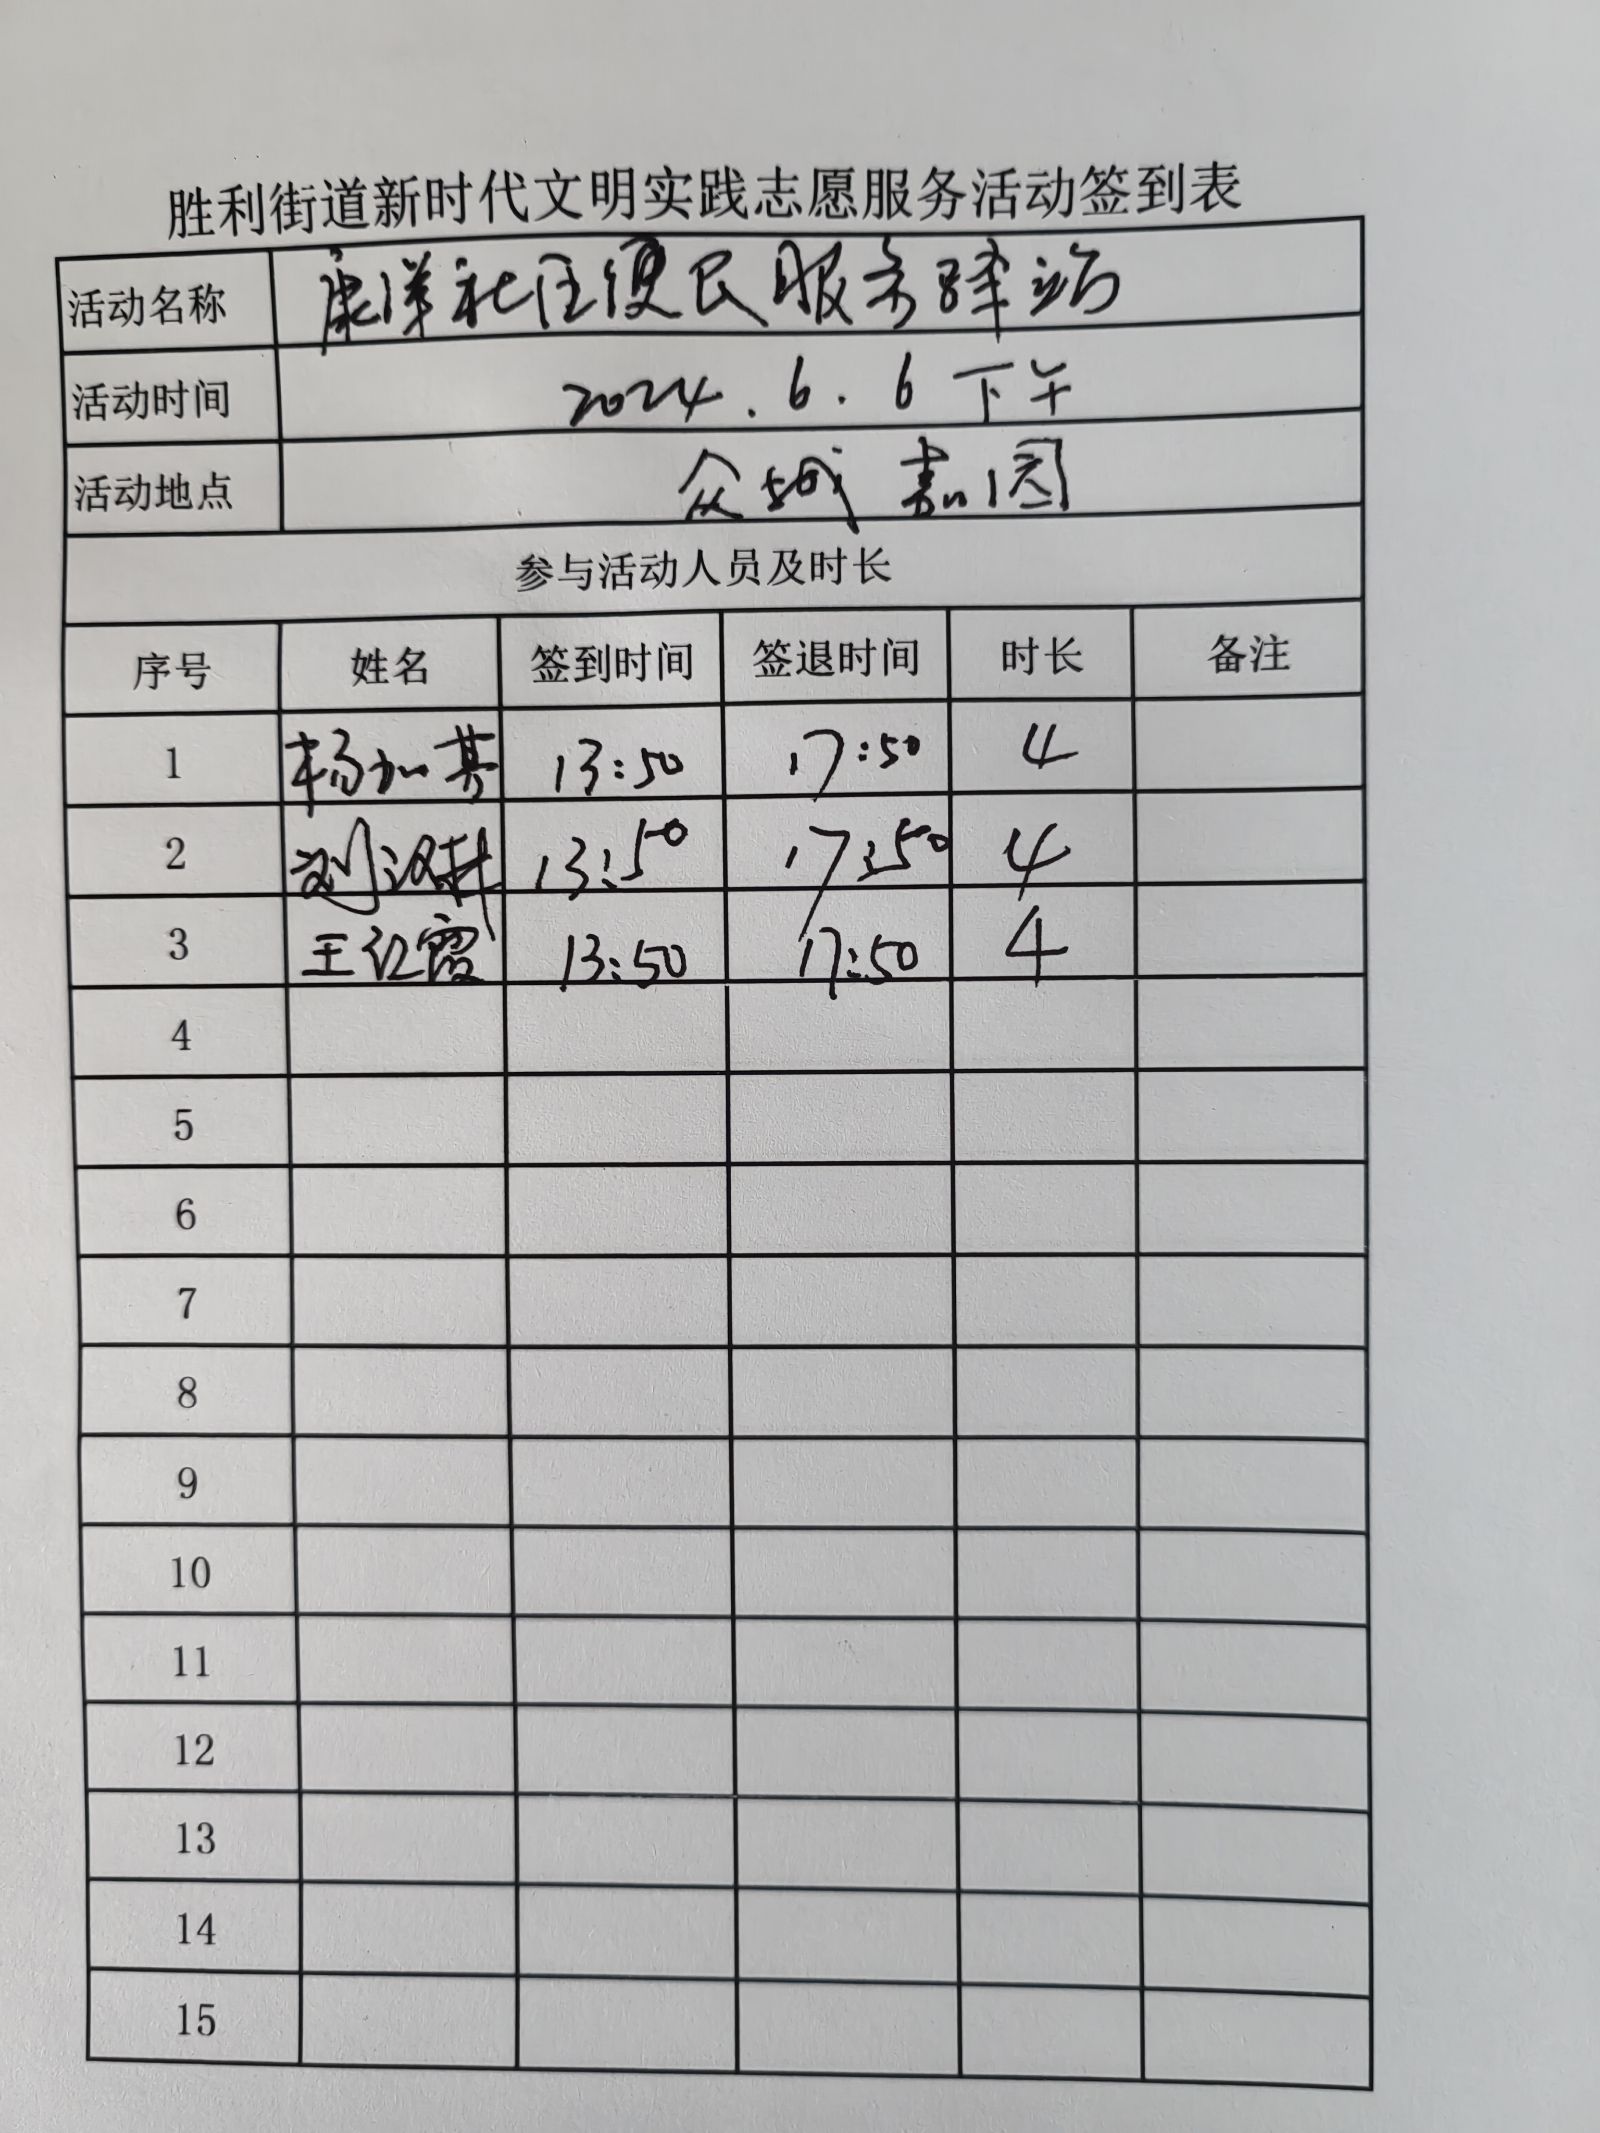 胜利街道新时代文明实践志愿服务活动签到表
活动名称 康洋社区便民服务驿站
活动时间 2024.6.6 下午
活动地点 众城嘉园
参与活动人员及时长
序号 姓名 签到时间 签退时间 时长 备注
1 杨加其 13:50 17:50 4
2 刘汉 13:50 17:50 4
3 王红霞 13:50 17:50 4
4
5
6
7
8
9
10
11
12
13
14
15